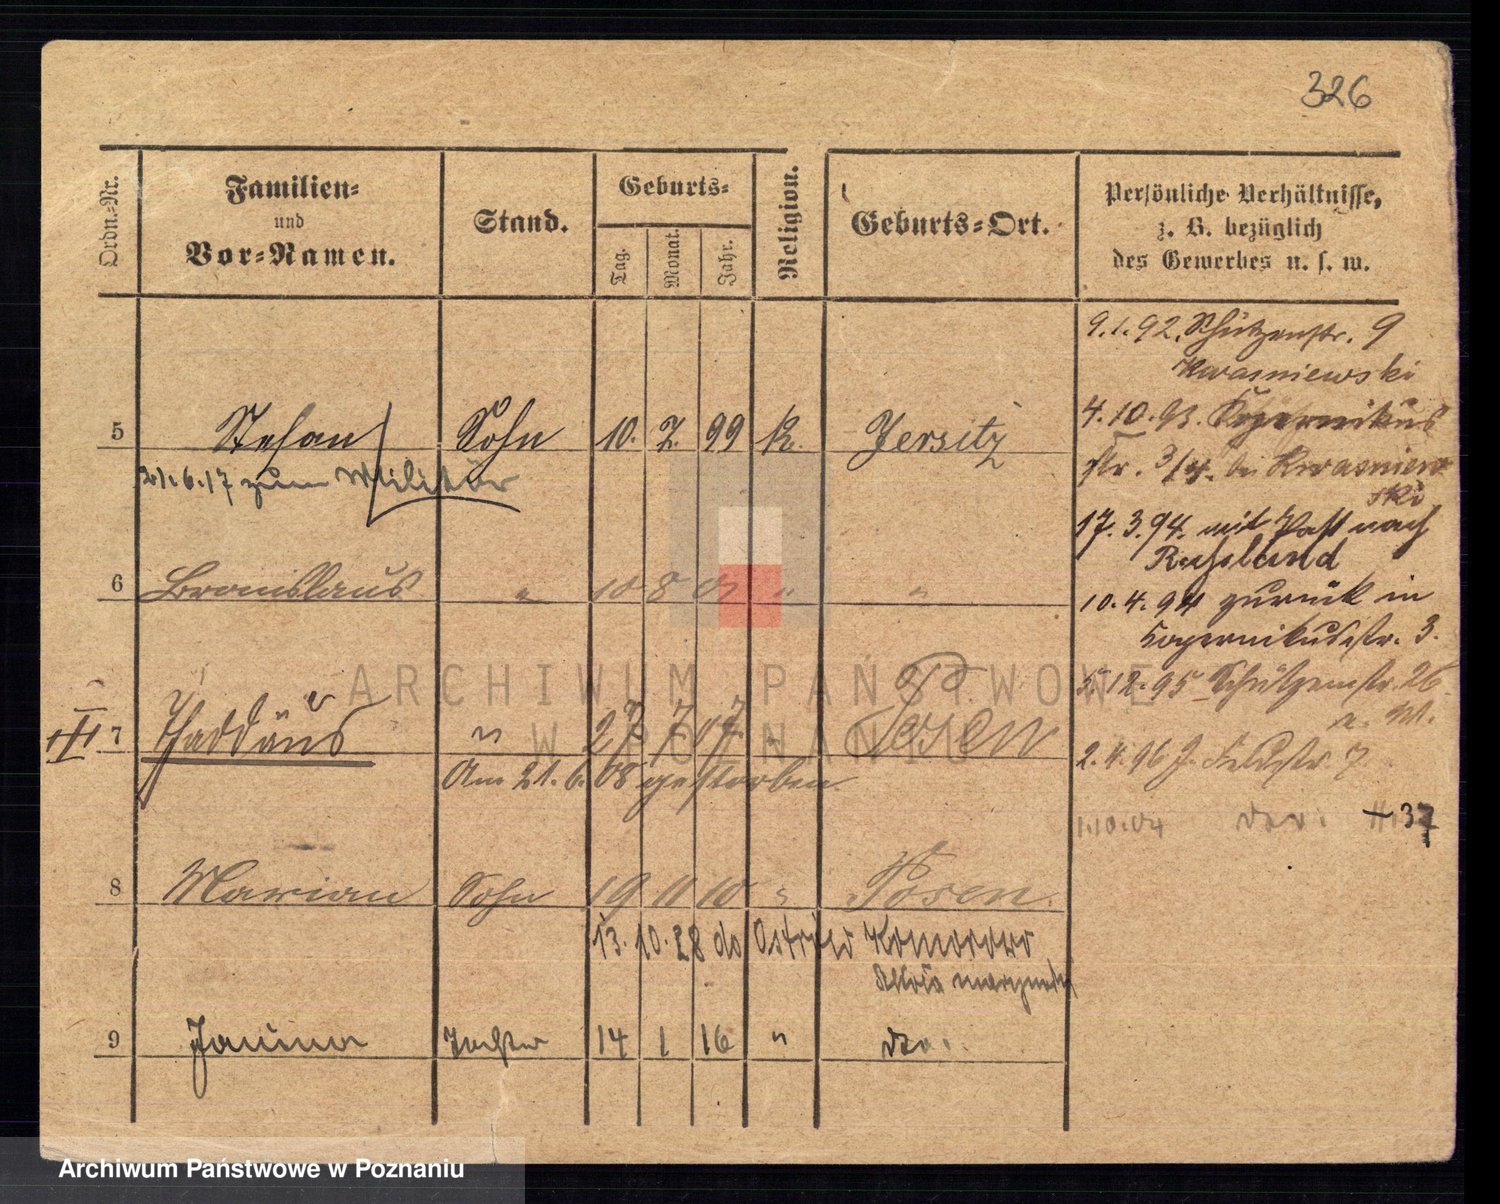 326
Ordn.-Nr.
Familien-
und
Vor-Namen.
Stand.
Geburts-
Tag.
Monat.
Jahr.
Religion.
Geburts-Ort.
Persönliche Verhältnisse,
z. B. bezüglich
des Gewerbes u. s. w.
9.1.92. Schützenstr. 9
Kwasniewski
4.10.93. Kopernikus
str. 3/4. bei Kwasniew
ski
17.3.94. mit Paß nach
Rußland
10.4.94 zurück in
Kopernikusstr. 3.
12.95 Schützenstr. 26
a. W.
2.4.96 J. Feldstr. 7
1.10.04 dto. 37
5 Stefan Sohn 10. 7. 99 k. Jersitz
21.6.17 zum Militär
6 Bronislaus " 10 8 01 " "
7 Thaddäus " 27 7 07 " Posen
Am 21.6.08 gestorben.
8 Marian Sohn 19 11 10 " Posen.
13.10.28 do Ostrów Komorowo
9 Janina Tochter 14 1 16 " dto.
ARCHIWUM PAŃSTWOWE
W POZNANIU
Archiwum Państwowe w Poznaniu